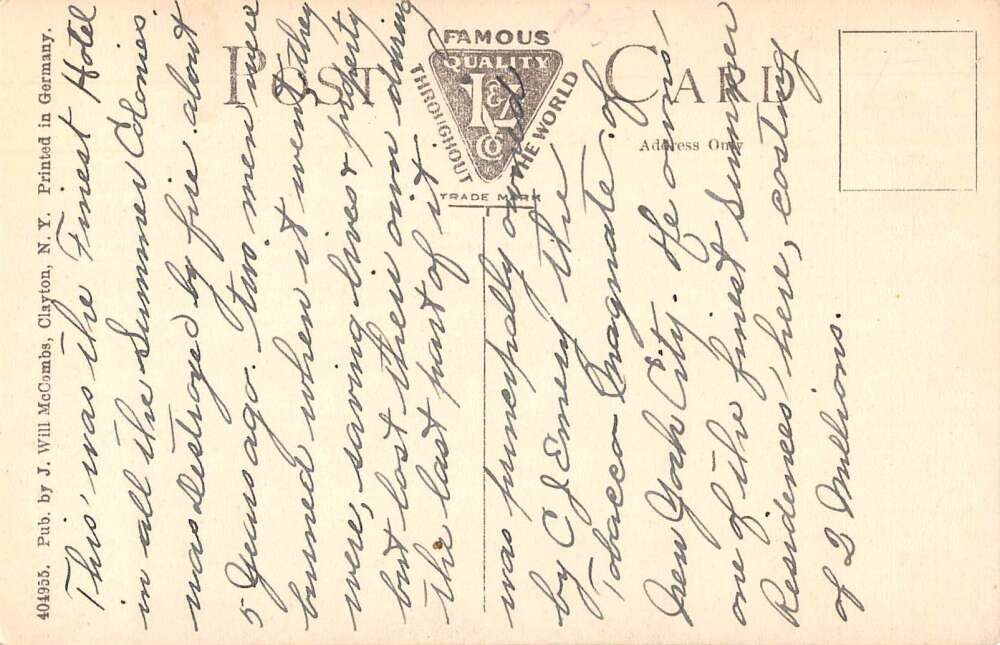 404955. Pub. by J. Will McCombs, Clayton, N. Y. Printed in Germany.
POST CARD
FAMOUS
QUALITY
THROUGHOUT
THE WORLD
TRADE MARK
Address Only
This was the Finest Hotel
in all the Summer Colonies.
was destroyed by fire about
5 years ago. two men were
burned when it went. they
were, saving lives & property
but lost there own during
the last part of it.
was principally owned
by C J Emery the
Tobacco Magnate of
New York City. He owns
one of the finest Summer
Residences here, costing
of 2 Millions.